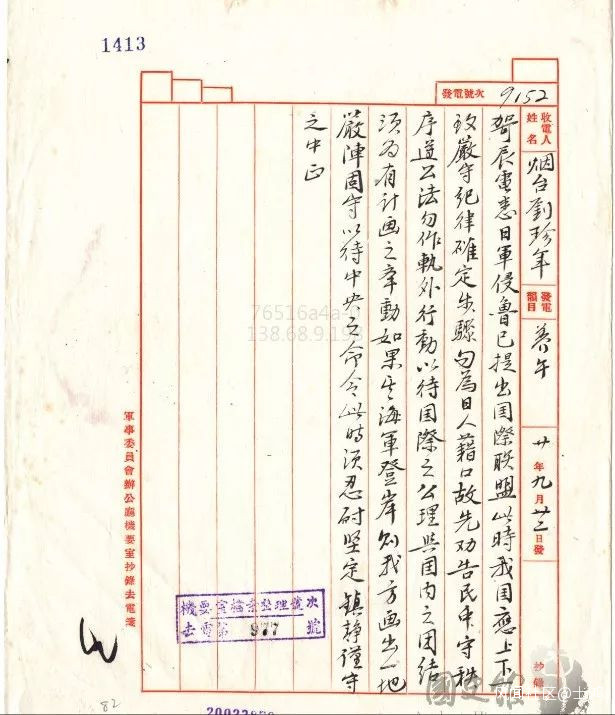 1413
發電號次 9152
收電人姓名 烟台劉珍年 發電韻目 養午 廿年九月廿二日發 抄錄
哿辰電悉日軍侵魯已提出国際聯盟此時我国應上下一
致嚴守紀律確定步驟勿為日人藉口故先劝告民众守秩
序遵公法勿作軌外行動以待国際之公理與国内之团结
须为有计画之举動如果其海軍登岸則我方画出一地
嚴陣固守以待中央之命令此時须忍耐坚定鎮静谨守
之中正
機要室檔案整理號次
去電第 977 號
軍事委員會辦公廳機要室抄錄去電箋
82
76516a4a-
138.68.9.19
國史館